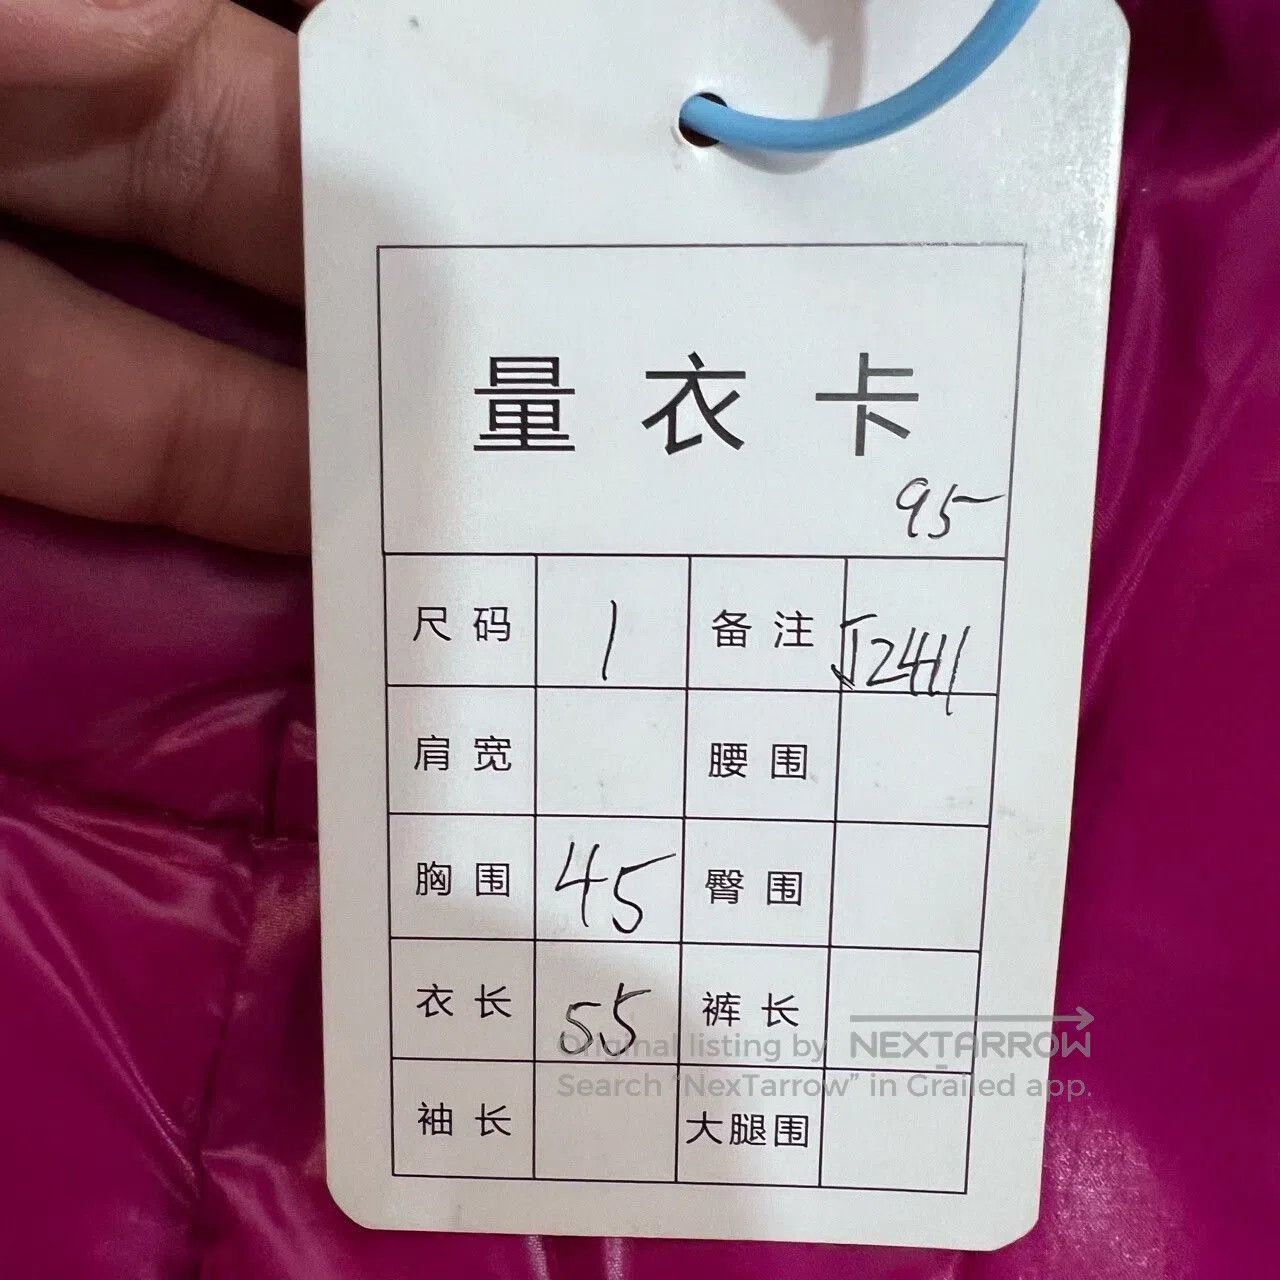 量衣卡
95
尺码 1 备注 J2411
肩宽 腰围
胸围 45 臀围
衣长 55 裤长
Original listing by NEXTARROW
Search "NexTarrow" in Grailed app.
袖长 大腿围